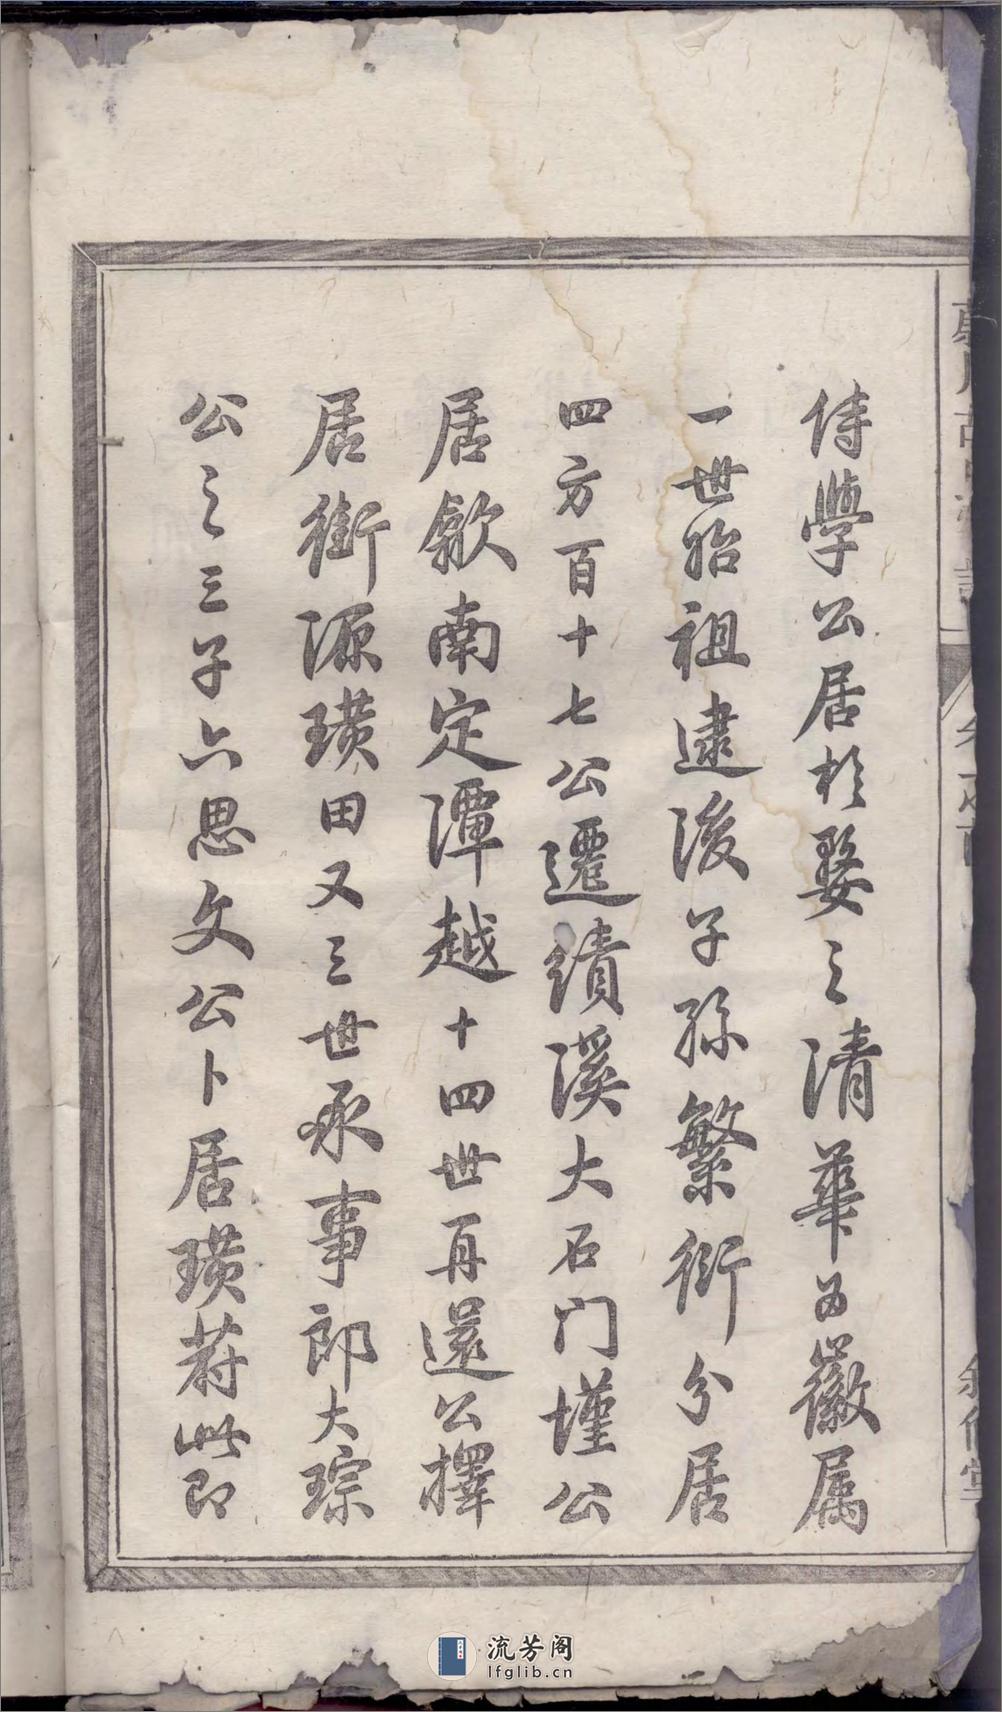 侍學公居於婺之清華為徽属
一世始祖逮後子孫繁衍分居
四方百十七公遷績溪大石门墐公
居歙南定潭越十四世再還公擇
居衝源璜田又三世承事郎大琮
公之三子六思文公卜居璜蔚此即
流芳阁
lfglib.cn